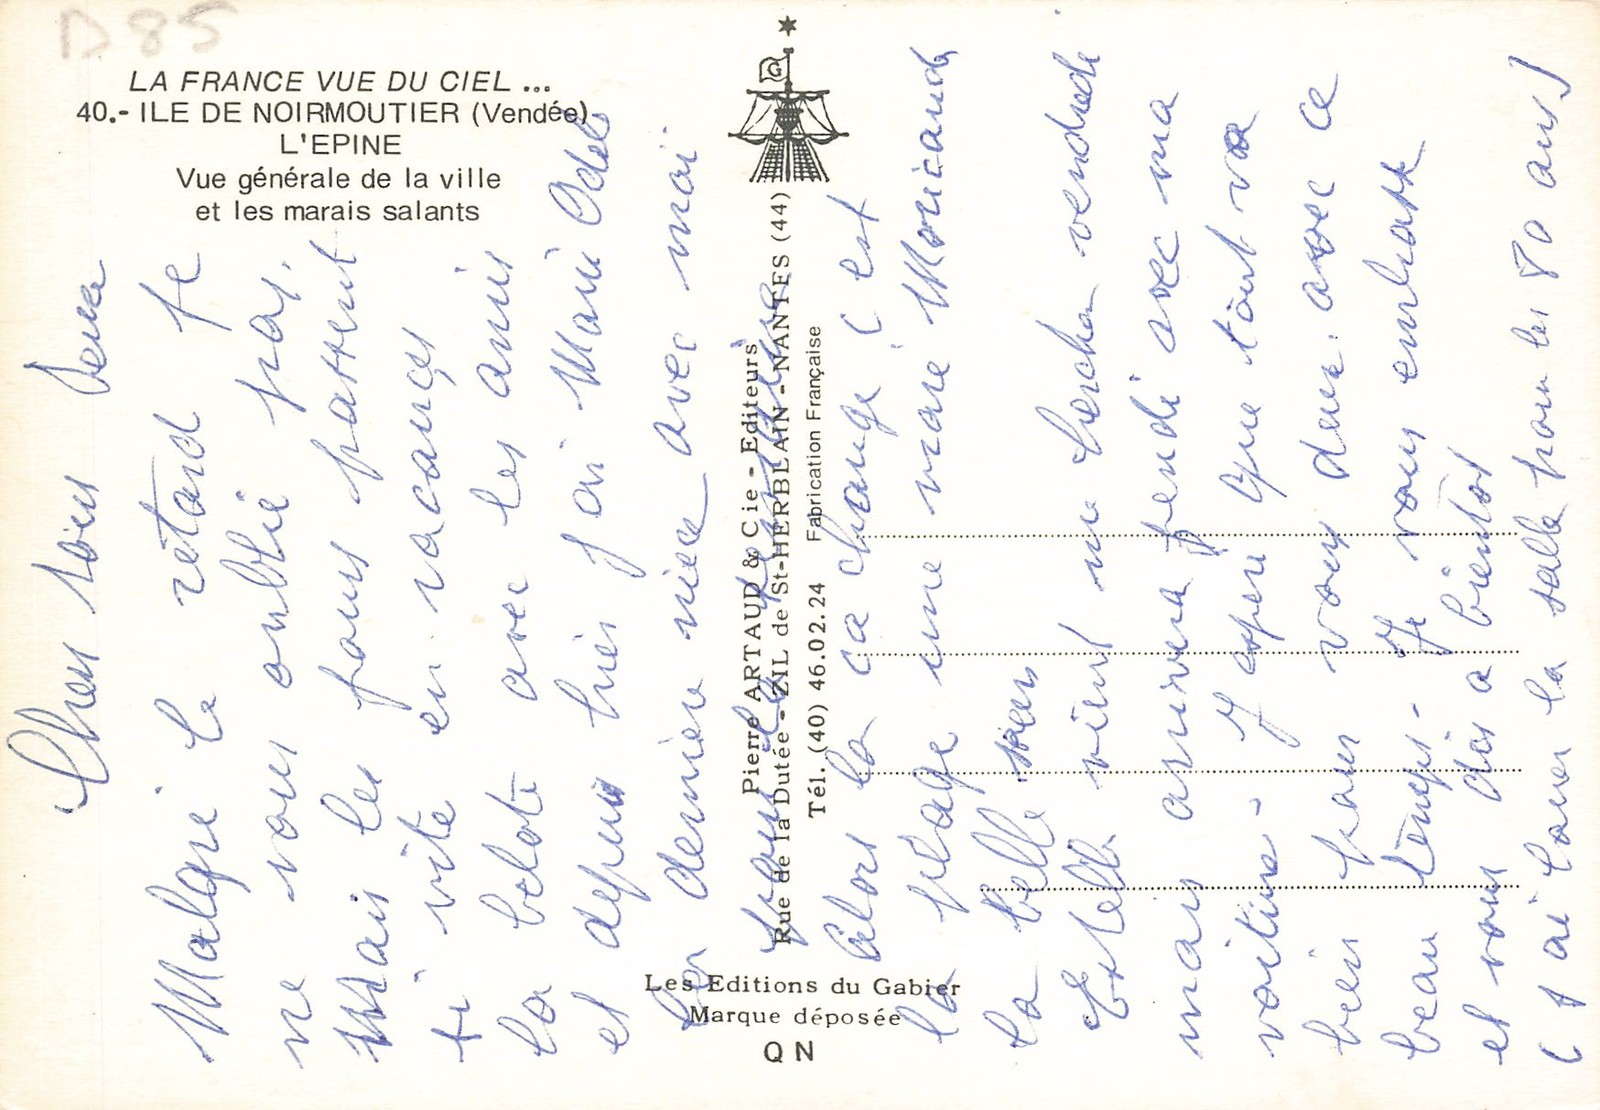 D 85
LA FRANCE VUE DU CIEL ...
40.- ILE DE NOIRMOUTIER (Vendée)
L'EPINE
Vue générale de la ville
et les marais salants
Pierre ARTAUD & Cie - Editeurs
Rue de la Dutée - ZIL de St-HERBLAIN - NANTES (44)
Tél. (40) 46.02.24 Fabrication Française
Les Editions du Gabier
Marque déposée
Q N
G
Chers tous deux
Malgré le retard je
ne vous oublie pas.
Mais les jours passent
si vite en vacances
la belote avec les amis
et depuis hier j ai Marie Odile
la dernière nièce avec moi
pour la
Alors la ça change c est
la plage une vraie Moricaude
la belle
Estelle vient me chercher vendredi
mais arrivera jeudi avec ma
voiture - J espère que tout va
bien pour vous deux avec ce
beau temps - Je vous embrasse
et vous dis a bientot
( J ai louer la salle pour les 80 ans)